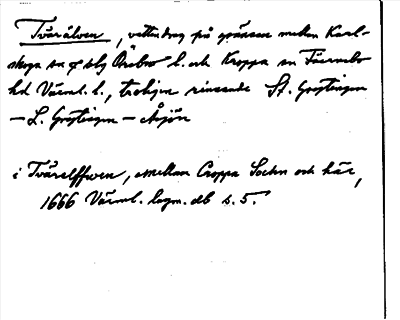 Tvärälven, vattendrag på gränsen mellan Karl-
skoga sn o sbg Örebro l. och Kroppa sn Färnebo
hd Värml. l., troligen rinnande St. Grytingen
— L. Grytingen — Åsjön
i Tvärelffwen, mellan Croppa Sochn och här,
1666 Värml. lagm. db s. 5.